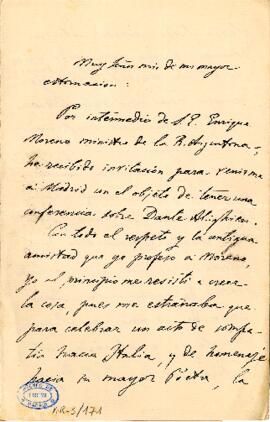 Muy Señor mio de mi mayor
estimacion:
Por intermedio de S. E. Enrique
Moreno ministro de la R. Argentina,
he recibido invitación para venirme
a Madrid con el objeto de tener una
conferencia sobre Dante Alighieri.
Con todo el respeto y la antigua
amistad que yo profeso a Moreno,
yo al principio me resistí a creer
la cosa, pues me extrañaba que
para celebrar un acto de simpa-
tia hacia Italia, y de homenaje
hacia su mayor Poeta, la